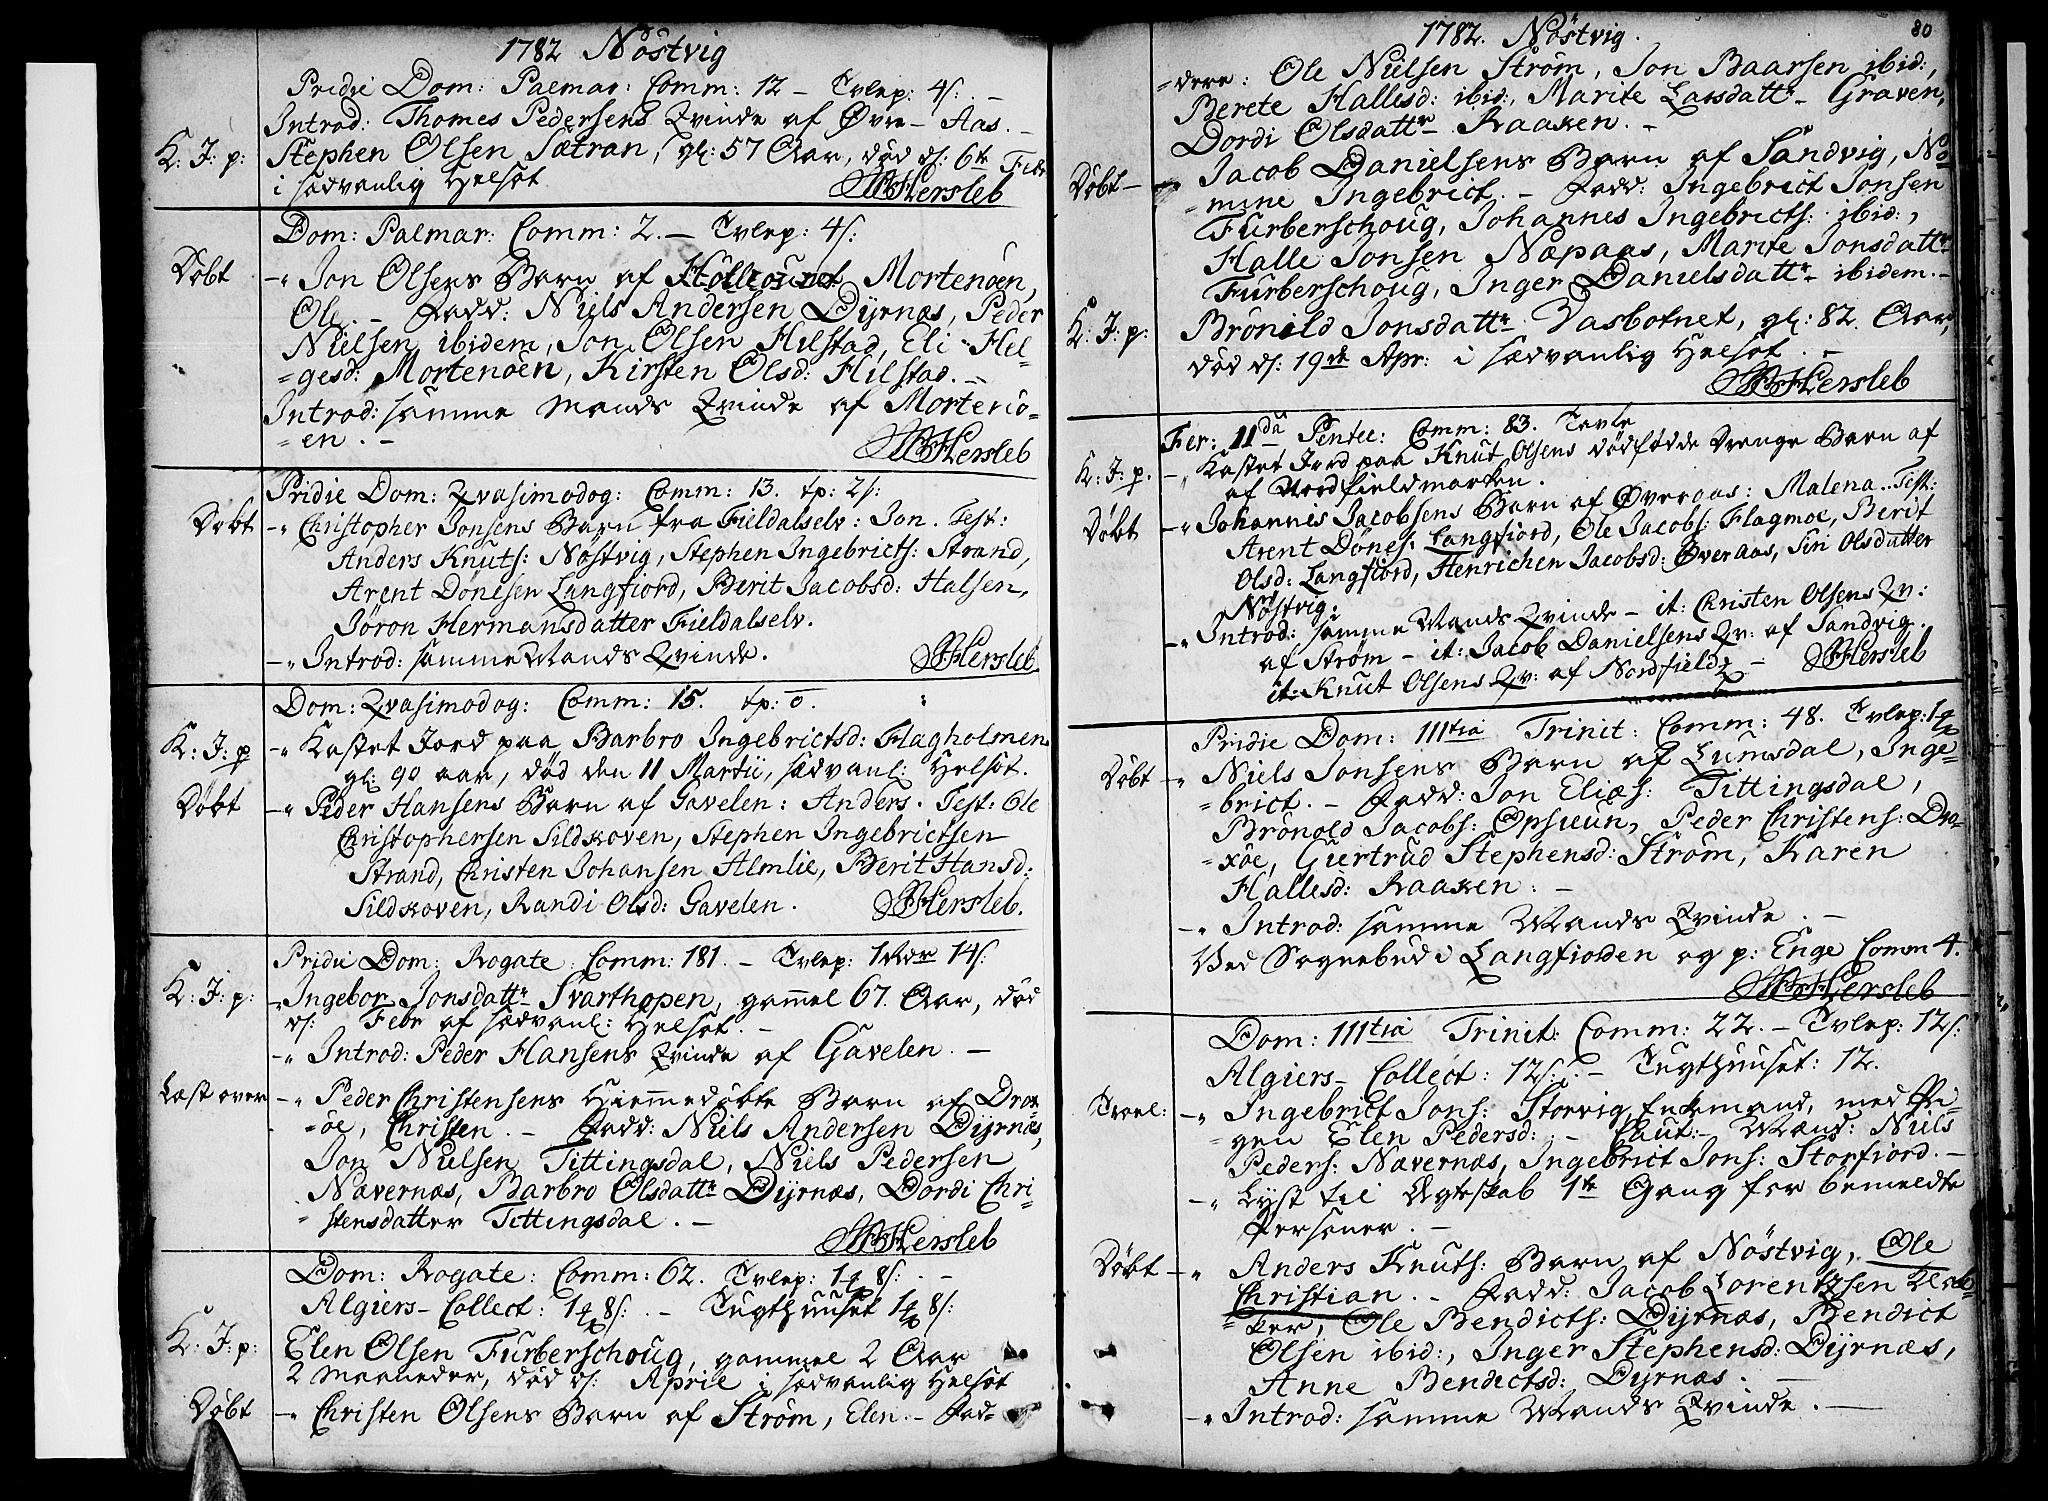 1782 Nöstvig
Pridie Dom: Palmar: Comm: 12 – Tvlep: 4 s: –
Introd: Thomes Pedersens Qvinde af Øvre-Aas. –
K: J: p: Stephen Olsen Sætran, gl: 57 Aar, död d: 6te Febr
i sædvanlig Helsot
Hersleb
Dom: Palmar: Comm: 2. – Tvlep: 4 s:
Döbt -" Jon Olsens Barn af Mortenöen,
Ole. – Fadd: Niels Andersen Dÿrnæs, Peder
Nielsen ibidem, Jon Olsen Hilstad, Eli Hel-
=gesd: Mortenöen, Kirsten Olsd: Hilstad. –
Introd: samme Mands Qvinde af Mortenö-
=en. –
Hersleb
Pridie Dom: Qvasimodog: Comm: 13. tp: 2 s:
Döbt -" Christopher Jonsens Barn fra Fieldalselv: Jon. Test:
Anders Knuts: Nöstvig, Stephen Ingebricts: Strand,
Arent Dönesen Langfiord, Berit Jacobsd: Halsen,
Jöron Hermansdatter Fieldalselv.
-" Introd: samme Mands Qvinde.
Hersleb
Dom: Qvasimodog: Comm: 15. tp: o.
K: J: p -" Kastet Jord paa Barbro Ingebrictsd: Flagholmen
gl: 90 aar, död den 11 Martii, sædvanl: Helsot.
Döbt -" Peder Hansens Barn af Gavelen: Anders. Test: Ole
Christophersen Sildskoven, Stephen Ingebrictsen
Strand, Christen Johansen Almlie, Berit Hansd:
Sildskoven, Randi Olsd: Gavelen.
Hersleb.
Pridie Dom: Rogate: Comm: 181. – Tvlep: 1 Rdr 14 s:
K: J: p: -" Ingebor Jonsdattr Svarthopen, gammel 67. Aar, död
d: Febr af sædvanl: Helsot. –
-" Introd: Peder Hansens Qvinde af Gavelen. –
Læst over -" Peder Christensens Hiemmedöbte Barn af Drax-
=öe, Christen. – Fadd: Niels Andersen Dÿrnæs,
Jon Nielsen Tittingsdal, Niels Pedersen
Nævernæs, Barbro Olsdattr Dÿrnæs, Dordi Chri-
=stensdatter Tittingsdal. –
Hersleb
Dom: Rogate: Comm: 62. Tvlep: 1 8 s: –
Algiers-Collect: 1 8 s: – Tugthuuset 1 8 s:
K: J: p: Elen Olsen Furberschoug, gammel 2 Aar
2 Maaneder, död d: April i sædvanlig Helsot
Döbt -" Christen Olsens Barn af Ström, Elen. – Fad-
1782. Nöstvig. 80
=dere: Ole Nielsen Ström, Jon Baarsen ibid:,
Berete Hallesd: ibid:, Marite Larsdattr Graven,
Dordi Olsdattr Raaken. –
Döbt – Jacob Danielsens Barn af Sandvig, No-
=mine Ingebrict. – Fadd: Ingebrict Jonsen
Furberschoug, Johannes Ingebricts: ibid:,
Halle Jonsen Næpaas, Marite Jonsdattr
Furberschoug, Inger Danielsdattr ibidem. –
K: J: p: Brönild Jonsdattr Vasbotnet, gl: 82. Aar,
död d: 19de Apr: i sædvanlig Helsot. –
Hersleb
Fer: 11da Pentec: Comm: 83. Tavle
K: J: p. -" Kastet Jord paa Knut Olsens dödfödde Drenge Barn af
af Nordfieldmarken.
Döbt -" Johannis Jacobsens Barn af Överaas: Malena. Test:
Arent Dönes: Langfiord, Ole Jacobs: Flagmoe, Berit
Olsd: Langfiord, Henrichen Jacobsd: Överaas, Siri Olsdatter
Nöstvig.
-" Introd: samme Mands Qvinde – it: Christen Olsens Qv:
af Ström – it: Jacob Danielsens Qv: af Sandvig.
it: Knut Olsens Qv: af Nordfield –
Hersleb
Pridie Dom: 111tia Trinit: Comm: 48. Tvlep: 1
Döbt -" Niels Jonsens Barn af Lumsdal, Inge-
=brict. – Fadd: Jon Elias: Tittingsdal,
Brönold Jacobs: Opsuun, Peder Christens: Dra-
=xöe, Giertrud Stephensd: Ström, Karen
Hallesd: Raaken: –
-" Introd: samme Mands Qvinde. –
Ved Sognebud i Langfiorden og p: Enge Comm 4.
Hersleb
Dom: 111tia Trinit: Comm: 22. – Tvlep: 12 s:
Algiers-Collect: 12 s: – Tugthuuset: 12.
Trol: -" Ingebrict Jons: Storvig, Enkemand, med Pi-
=gen Elen Pedersd: – Caut:- Mænd: Niels
Peders: Nævernæs, Ingebrict Jons: Storfiord. –
-" Lyst til Ægteskab 1te Gang for bemeldte
Personer. –
Döbt -" Anders Knuts: Barn af Nöstvig, Ole
Christian. – Fadd: Jacob Lorentzsen
=ker, Ole Bendicts: Dÿrnæs, Bendict
Olsen ibid:, Inger Stephensd: Dÿrnæs,
Anne Bendictsd: Dÿrnæs. –
-" Introd: samme Mands Qvinde. –